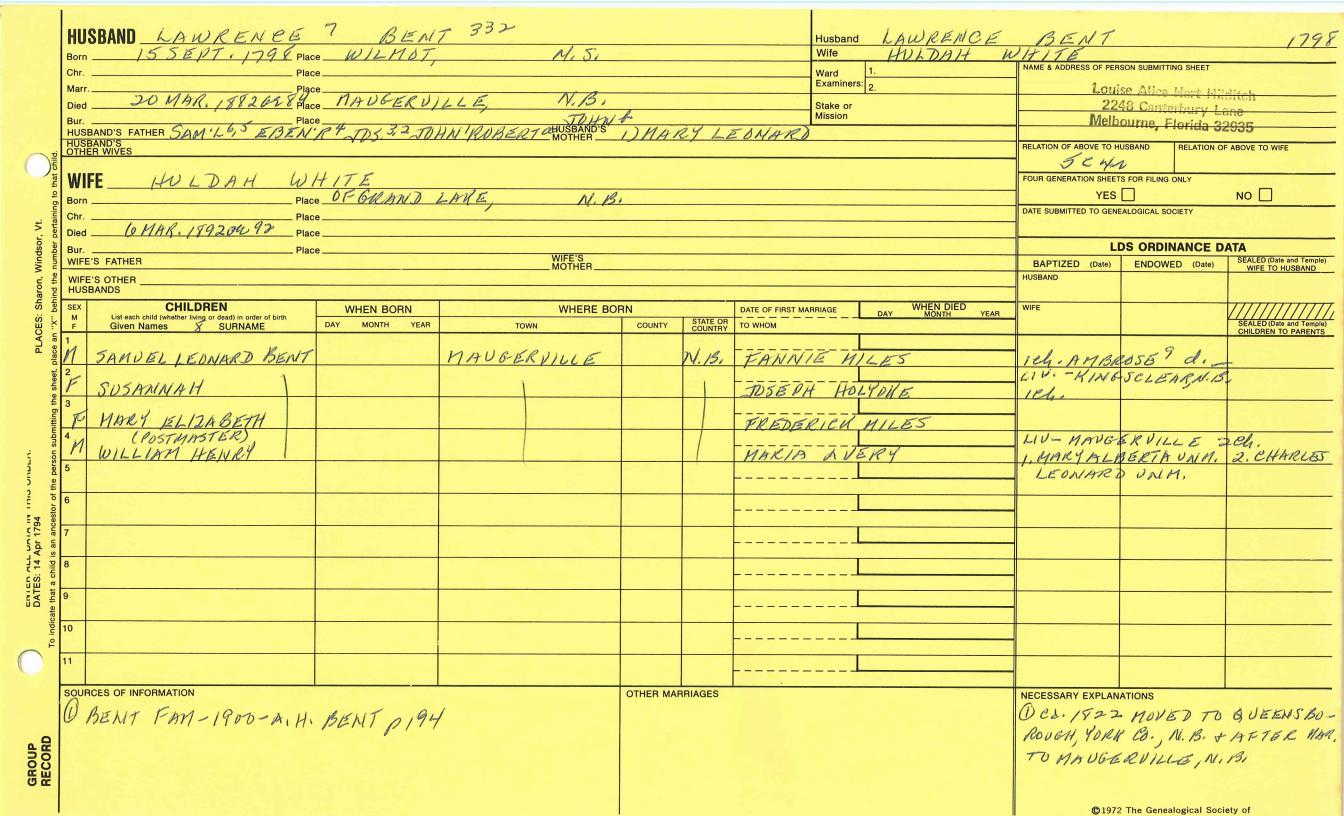 HUSBAND LAWRENCE 7 BENT 332
Husband LAWRENCE BENT 1798
Born 15 SEPT. 1798 Place WILMOT, N.S.
Wife HULDAH WHITE
Chr. Place
Ward Examiners: 1. 2.
Marr. Place
Died 20 MAR. 1882 Place MAUGERVILLE, N.B.
Stake or Mission
Bur. Place
HUSBAND'S FATHER SAM'L 6,5 EBEN'R 4 JOS 3,2 JOHN 1 ROBERT JOHN
HUSBAND'S MOTHER 1) MARY LEONARD
HUSBAND'S OTHER WIVES
NAME & ADDRESS OF PERSON SUBMITTING SHEET
Louise Alice Hart Hilditch
2248 Canterbury Lane
Melbourne, Florida 32935
RELATION OF ABOVE TO HUSBAND RELATION OF ABOVE TO WIFE
5C4R
FOUR GENERATION SHEETS FOR FILING ONLY
YES NO
DATE SUBMITTED TO GENEALOGICAL SOCIETY
WIFE HULDAH WHITE
Born Place OF GRAND LAKE, N.B.
Chr. Place
Died 6 MAR. 1892 Place
Bur. Place
WIFE'S FATHER WIFE'S MOTHER
WIFE'S OTHER HUSBANDS
LDS ORDINANCE DATA
BAPTIZED (Date) ENDOWED (Date) SEALED (Date and Temple) WIFE TO HUSBAND
HUSBAND
WIFE
SEALED (Date and Temple) CHILDREN TO PARENTS
SEX M F
CHILDREN
List each child (whether living or dead) in order of birth
Given Names 8 SURNAME
WHEN BORN
DAY MONTH YEAR
WHERE BORN
TOWN COUNTY STATE OR COUNTRY
DATE OF FIRST MARRIAGE
TO WHOM
WHEN DIED
DAY MONTH YEAR
1 M SAMUEL LEONARD BENT MAUGERVILLE N.B. FANNIE MILES 1ch. AMBROSE 9 d. —
2 F SUSANNAH JOSEPH HOLYOKE LIV. - KINGSCLEAR N.B. 1ch.
3 F MARY ELIZABETH FREDERICK MILES
4 M (POSTMASTER) WILLIAM HENRY MARIA AVERY LIV - MAUGERVILLE 2ch.
1. MARY ALBERTA UNM. 2. CHARLES
LEONARD UNM.
5
6
7
8
9
10
11
SOURCES OF INFORMATION
① BENT FAM-1900-A.H. BENT p194
OTHER MARRIAGES
NECESSARY EXPLANATIONS
① CA. 1822 MOVED TO QUEENSBO-
ROUGH, YORK CO., N.B. & AFTER MAR.
TO MAUGERVILLE, N.B.
©1972 The Genealogical Society of
PLACES: Sharon, Windsor, Vt.
DATES: 14 Apr 1794
To indicate that a child is an ancestor of the person submitting the sheet, place an "X" behind the number pertaining to that child.
GROUP RECORD